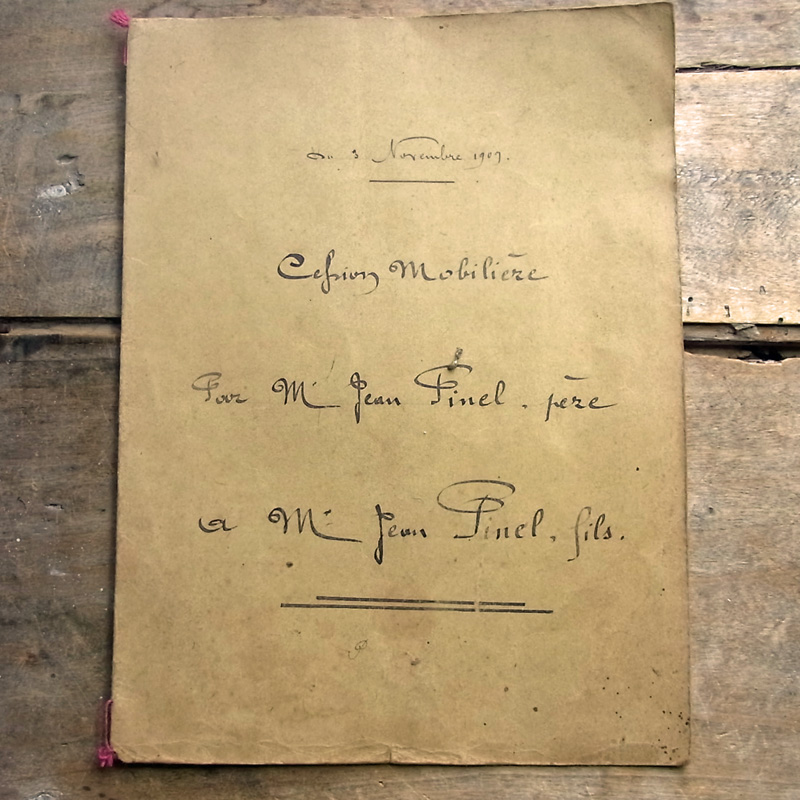 du 3 Novembre 1907.
Cession Mobilière
Par Mr Jean Pinel, père
a Mr Jean Pinel, fils.